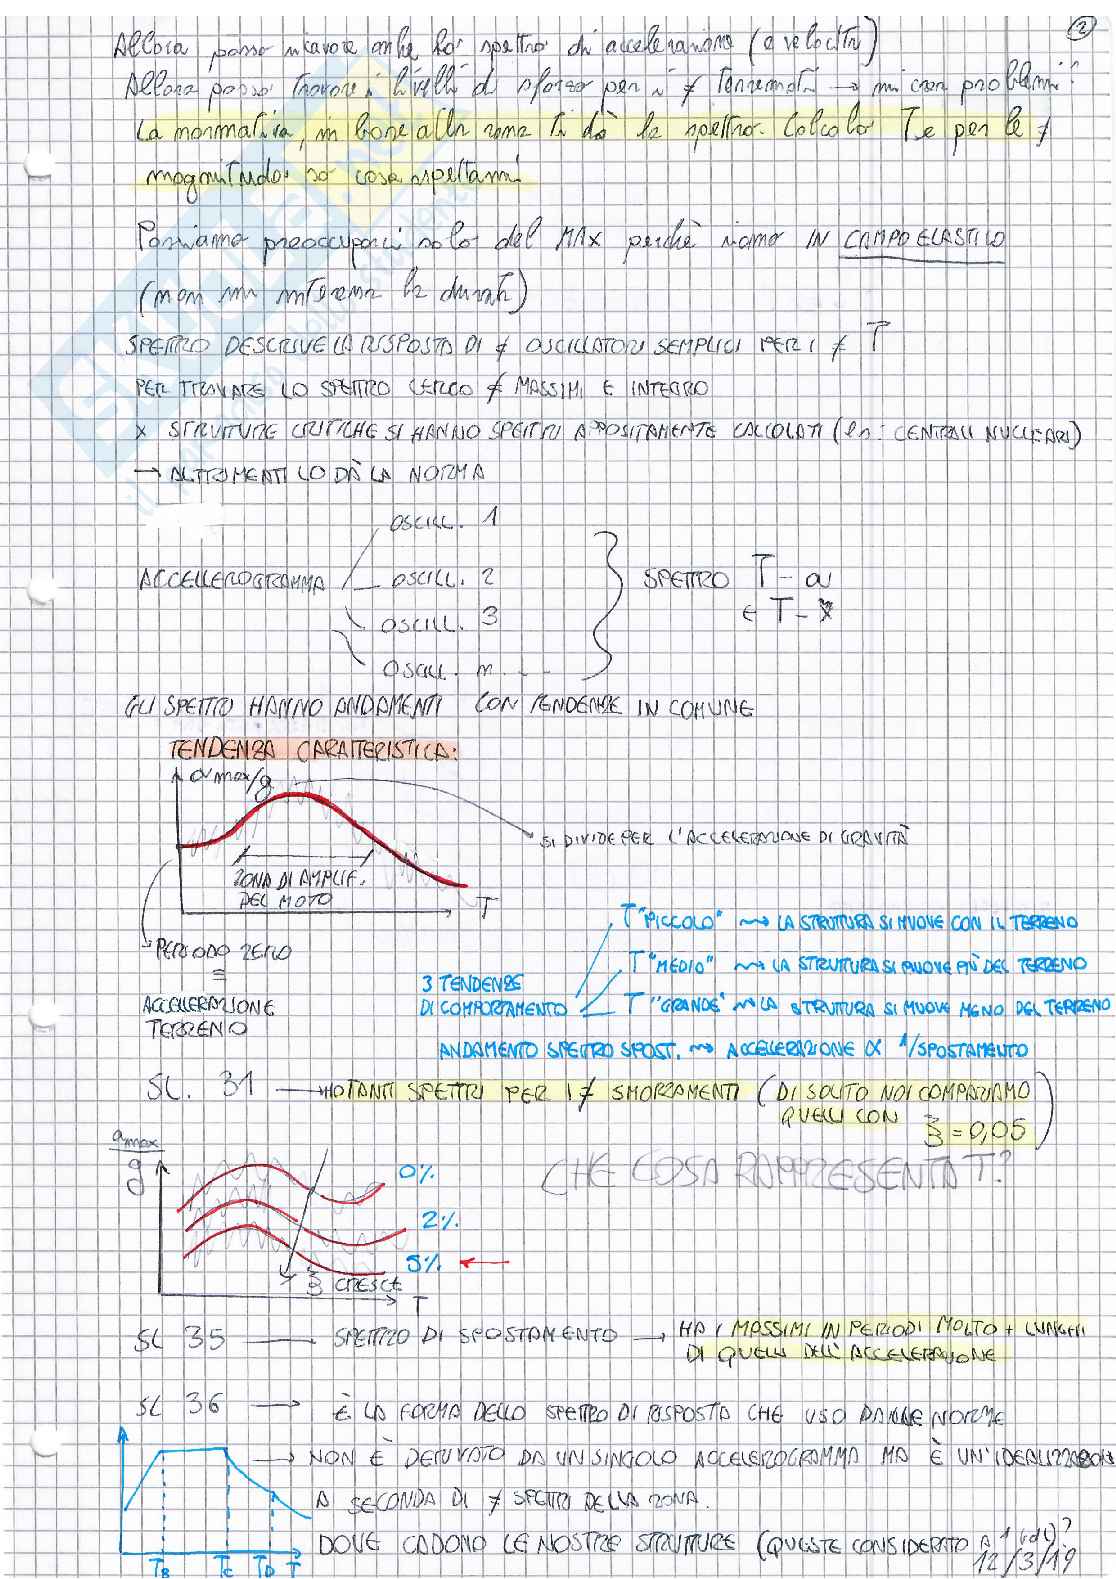 2
Allora posso ricavare anche lo spettro di accelerazione (e velocità)
Allora posso trovare i livelli di sforzo per i ≠ terremoti → mi crea problemi!
La normativa, in base alla zona ti dà lo spettro. Calcolo Te per le ≠
magnitudo: so cosa aspettarmi
Possiamo preoccuparci solo del MAX perchè siamo IN CAMPO ELASTICO
(non mi interessa la durata)
SPETTRO DESCRIVE LA RISPOSTA DI ≠ OSCILLATORI SEMPLICI PER I ≠ T
PER TROVARE LO SPETTRO CERCO ≠ MASSIMI E INTEGRO
X STRUTTURE CRITICHE SI HANNO SPETTRI APPOSITAMENTE CALCOLATI (es: CENTRALI NUCLEARI)
→ ALTRIMENTI LO DÀ LA NORMA
OSCILL. 1
ACCELLEROGRAMMA
OSCILL. 2
SPETTRO T - a
E T - x
OSCILL. 3
OSCILL. n...
GLI SPETTRO HANNO ANDAMENTI CON TENDENZE IN COMUNE
TENDENZA CARATTERISTICA:
a max/g
SI DIVIDE PER L'ACCELERAZIONE DI GRAVITÀ
ZONA DI AMPLIF.
DEL MOTO
T
PERIODO ZERO
=
ACCELLERAZIONE
TERRENO
3 TENDENZE
DI COMPORTAMENTO
T "PICCOLO" ⇝ LA STRUTTURA SI MUOVE CON IL TERRENO
T "MEDIO" ⇝ LA STRUTTURA SI MUOVE PIÙ DEL TERRENO
T "GRANDE" ⇝ LA STRUTTURA SI MUOVE MENO DEL TERRENO
ANDAMENTO SPETTRO SPOST. ⇝ ACCELERAZIONE ∝ 1/SPOSTAMENTO
SL. 31 → HO TANTI SPETTRI PER I ≠ SMORZAMENTI (DI SOLITO NOI COMPARIAMO
QUELLI CON ξ = 0,05)
CHE COSA RAPPRESENTA T?
amax
g
0%
2%
5% ←
ξ CRESCE
T
SL 35 → SPETTRO DI SPOSTAMENTO → HA I MASSIMI IN PERIODI MOLTO + LUNGHI
DI QUELLI DELL'ACCELERAZIONE
SL 36 → È LA FORMA DELLO SPETTRO DI RISPOSTA CHE USO DALLE NORME
→ NON È DERIVATO DA UN SINGOLO ACCELEROGRAMMA MA È UN'IDEALIZZAZIONE
A SECONDA DI ≠ SPETTRI DELLA ZONA.
DOVE CADONO LE NOSTRE STRUTTURE (QUESTE CONSIDERATO A 1 GdL)?
TB TC TD T
12/3/19